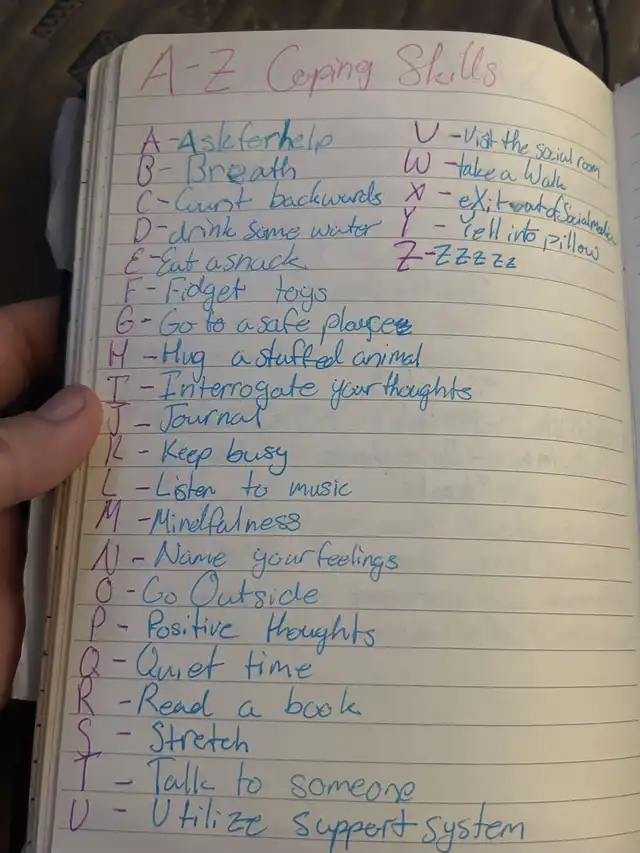 A-Z Coping Skills
A - Ask for help
B - Breath
C - Count backwards
D - drink some water
E - Eat a snack
F - Fidget toys
G - Go to a safe place
H - Hug a stuffed animal
I - Interrogate your thoughts
J - Journal
K - Keep busy
L - Listen to music
M - Mindfulness
N - Name your feelings
O - Go Outside
P - Positive thoughts
Q - Quiet time
R - Read a book
S - Stretch
T - Talk to someone
U - Utilize support system
V - Visit the social room
W - take a Walk
X - eXit out of Social media
Y - Yell into pillow
Z - ZZZZZ